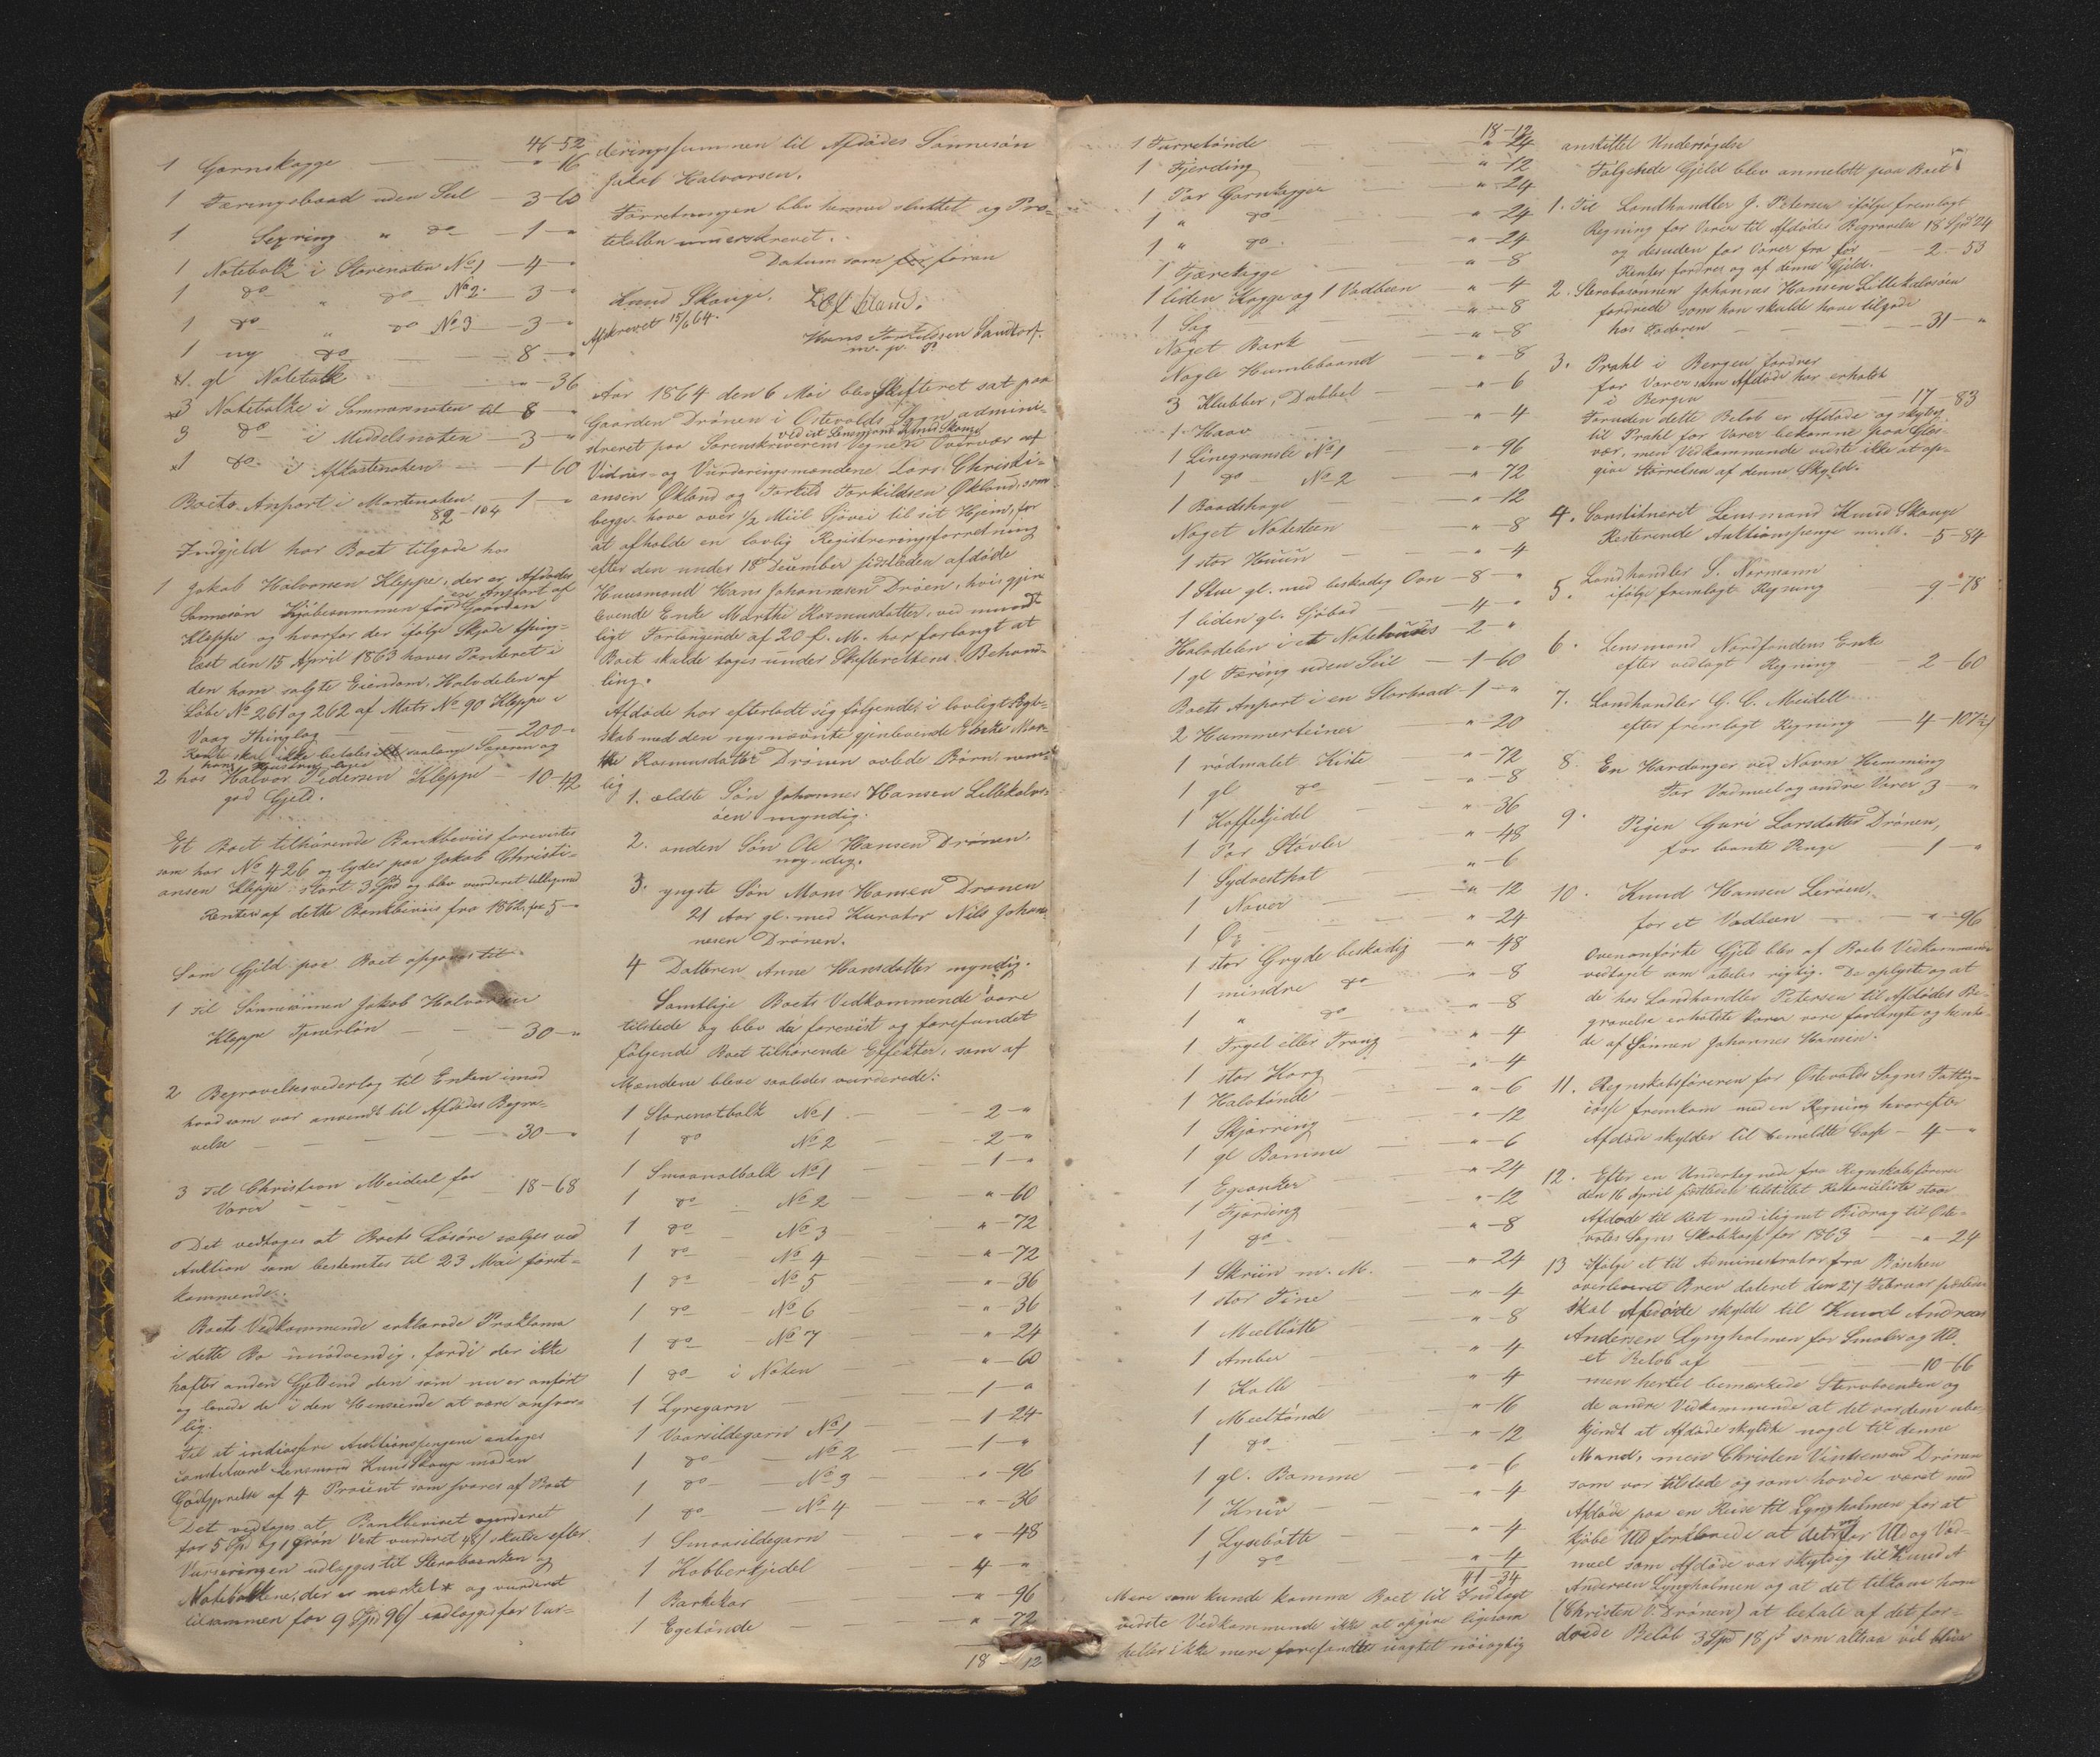 46-52
1 Garnskagge — " 16
1 Færingsbaad uden Seil — 3-60
1 Sexring " do — 1-"
1 Notebalk i Storenoten No 1 — 4-"
1 do " do No 2 — 3-"
1 do " do No 3 — 3-"
1 ny do — 8-"
1 gl Notebalk — "-36
3 Notebalke i Sommernoten til 8-"
3 do i Middelsnoten — 3-"
1 do i — 1-60
Boets Anpart i Mortenoten — 1-"
82-104
Indgjeld har Boet tilgode hos
1 Jakob Halvorsen Kleppe, der er Afdødes
Sønnesøn Kjøbesummen for en Anpart af Gaarden
Kleppe og hvorfor der ifølge Skjøde thing-
læst den 15 April 1863 haves Panteret i
den ham solgte Eiendom, Halvdelen af
Løbe No 261 og 262 af Matr No 90 Kleppe i
Vaag Thinglag — 200-"
Rente skal ikke betales saalænge Sønnen og
hans Hustru lever
2 hos Halvor Pedersen Kleppe — 10-42
god Gjeld.
Et Boet tilhørende Bankbeviis forevistes
som har No 426 og lyder paa Jakob Christi-
ansen Kleppe stort 3 Spd og blev vurderet tilligemed
Renten af dette Bankbeviis fra 1862, for 5-"
Som Gjeld paa Boet opgaves til
1 til Sønnesønnen Jakob Halvorsen
Kleppe Tjenerløn — 30-"
2 Begravelsesvederlag til Enken imod
hvad som var anvendt til Afdødes Begra-
velse — 30-"
3 til Christian Meidell for
Varer — 18-68
Det vedtoges at Boets Løsøre sælges ved
Auktion som bestemtes til 23 Mai først-
kommende.
Boets Vedkommende erklærede Proklama
i dette Bo unødvendig, fordi der ikke
hefter anden Gjeld end den som nu er anført
og lovede de i den Henseende at være ansvar-
lig.
Til at indkassere Auktionspengene antoges
constitueret Lensmand Knud Skauge mod en
Godtgjørelse af 4 Procent som svares af Boet
Det vedtoges at Bankbeviset vurderet
for 5 Spd og 1 grøn Vest vurderet 48 s skulde efter
Vurderingen udlægges til Stervboenken og
Notebalkene, der er mærket * og vurderet
tilsammen for 9 Spd 96 s udlægges for Vur-
deringssummen til Afdødes Sønnesøn
Jakob Halvorsen.
Forretningen blev hermed sluttet og Pro-
tokollen underskrevet.
Datum som før foran
Knud Skauge. L Olsen Øeland.
Afskrevet 15/6 64. Hans Torkildsen Sandtorf.
m. p. P.
Aar 1864 den 6 Mai blev Skifteret sat paa
Gaarden Drønen i Østevolds Sogn admini-
streret paa Sorenskriverens Vegne ved cst Lensmand Knud Skauge i Overvær af
Vidnes- og Vurderingsmændene Lars Christi-
ansen Økland og Torkild Torkildsen Økland, som
begge have over 1/2 Miil Sjøvei til sit Hjem, for
at afholde en lovlig Registreringsforretning
efter den under 18 December sidstleden afdøde
Huusmand Hans Johannesen Drøen, hvis gjen
levende Enke Marthe Rasmusdatter, ved mundt
ligt Forlangende af 20 f. M. har forlangt at
Boet skulde tages under Skifterettens Behand-
ling.
Afdøde har efterladt sig følgende i lovligt Ægte-
skab med den nysnævnte gjenlevende Enke Mar-
the Rasmusdatter Drønen avlede Børn, nem-
lig
1. ældste Søn Johannes Hansen Lillekalvs-
øen myndig.
2. anden Søn Ole Hansen Drønen.
myndig.
3. yngste Søn Mons Hansen Drønen
21 Aar gl. med Kurator Nils Johan-
nesen Drønen.
4 Datteren Anne Hansdatter myndig.
Samtlige Boets Vedkommende vare
tilstede og blev der forevist og forefundet
følgende Boet tilhørende Effekter, som af
Mændene bleve saaledes vurderede:
1 Storenotbalk No 1 — 2-"
1 do No 2 — 2-"
1 Smaanotbalk No 1 — 1-"
1 do No 2 — "-60
1 do No 3 — "-72
1 do No 4 — "-72
1 do No 5 — "-36
1 do No 6 — "-36
1 do No 7 — "-24
1 do i Noten — "-60
1 Lyregarn — 1-"
1 Vaarsildegarn No 1 — 1-24
1 do No 2 — 1-"
1 do No 3 — "-96
1 do No 4 — "-36
1 Smaasildegarn — "-48
1 Kobberkjedel — 4-"
1 Barkekar — "-96
1 Egetønde — "-72
18-12
18-12
1 Furretønde — "-24
1 Fjerding — "-12
1 Par Garnkagger — "-24
1 " do — "-24
1 " do — "-24
1 Tjærekagge — "-8
1 liden Kagge og 1 Vadbeen — "-4
1 Sag — "-8
Noget Bark — "-8
Nogle Humlebaand — "-8
3 Klubber, Dubbel — "-6
1 Haav — "-4
1 Linegranste No 1 — "-96
1 do No 2 — "-72
1 Baadshage — "-12
Noget Notesteen — "-8
1 stor Huun — "-4
1 Stue gl. med beskadig Oon — 8-"
1 liden gl. Sjøbod — 4-"
Halvdelen i et Notehuus — 2-"
1 gl Færing uden Seil — 1-60
Boets Anpart i en Storbaad — 1-"
2 Hammerteiner — "-20
1 rødmalet Kiste — "-72
1 gl do — "-8
1 Kaffekjedel — "-36
1 Par Støvler — "-48
1 Sydvesthat — "-6
1 Naver — "-12
1 Øx — "-24
1 stor Gryde beskadig — "-48
1 mindre do — "-8
1 " do — "-8
1 Trygel eller Traug — "-4
1 stor Korg — "-4
1 Halvtønde — "-6
1 Skjørring — "-12
1 gl Bomme — "-6
1 Egeanker — "-24
1 Fjerding — "-12
1 do — "-8
1 Skriin m. M. — "-24
1 stor Tine — "-4
1 Meelbøtte — "-8
1 Amber — "-4
1 Kolle — "-4
1 Meeltønde — "-16
1 do — "-12
1 gl. Bomme — "-6
1 Kniv — "-4
1 Lysebøtte — "-4
1 do — "-4
41-34
Mere som kunde komme Boet til Indtægt
vidste Vedkommende ikke at opgive ligesom
heller ikke mere forefandtes uagtet nøiagtig
anstillet Undersøgelse
Følgende Gjeld blev anmeldt paa Boet
1. Til Landhandler J. Petersen ifølge fremlagt
Regning for Varer til Afdødes Begravelse 18 Spd 24
og desuden for Varer fra før — 2-53
Renter fordres og af denne Gjeld.
2. Stervbosønnen Johannes Hansen Lillekalvsøen
fordrede som han skulde have tilgode
hos Faderen — 31-"
3. Prahl i Bergen fordrer
for Varer som Afdøde har erholdt
i Bergen — 17-83
Foruden dette Beløb er Afdøde og skyldig
til Prahl for Varer bekomne paa Glæs-
vær, men Vedkommende vidste ikke at op-
give Størrelsen af denne Skyld.
4. Constitueret Lensmand Knud Skauge
Resterende Auktionspenge — 5-84
5. Landhandler S. Normann
ifølge fremlagt Regning — 9-78
6. Lensmand Nordfondens Enke
efter vedlagt Regning — 2-60
7. Landhandler G. C. Meidell
efter fremlagt Regning — 4-107 1/2
8. En Hardanger ved Navn Hemming
for Vadmeel og andre Varer 3-"
9. Pigen Guri Larsdatter Drønen,
for laante Penge — 1-"
10. Knud Hansen Lerøen,
for et Vadbeen — "-96
Ovenanførte Gjeld blev af Boets Vedkommende
vedtaget som aldeles rigtig. De oplyste og at
de hos Landhandler Petersen til Afdødes Be-
gravelse erholdte Varer vare forlangte og hente-
de af Sønnen Johannes Hansen.
11. Regnskabsføreren for Østevolds Sogns Fattig-
casse fremkom med en Regning hvorefter
Afdøde skylder til bemeldte Casse — 4-"
12. Efter en Undertegnede fra Regnskabsføreren
den 16 April sidstleden tilstillet Restanceliste staar
Afdøde til Rest med ilignet Bidrag til Øste-
volds Sogns Skolekasse for 1863 — "-24
13 Ifølge et til Administrator fra Boschen
overleveret Brev dateret den 27 Februar sidstleden
skal Afdøde skylde til Knud Andreas
Andersen Lyngholmen for Smaler og Uld
et Beløb af — 10-66
men hertil bemærkede Stervboenken og
de andre Vedkommende at det var dem ube-
kjendt at Afdøde skyldte noget til denne
Mand, men Christen Vintsensen Drønen
som var tilstede og som havde været med
Afdøde paa en Reise til Lyngholmen for at
kjøbe Uld forklarede at det var for Uld og Vad-
meel som Afdøde var skyldig til Knud A
Andersen Lyngholmen og at det tilkom ham
(Christen V. Drønen) at betale af det for-
drede Beløb 3 Spd 18 s som altsaa vil blive